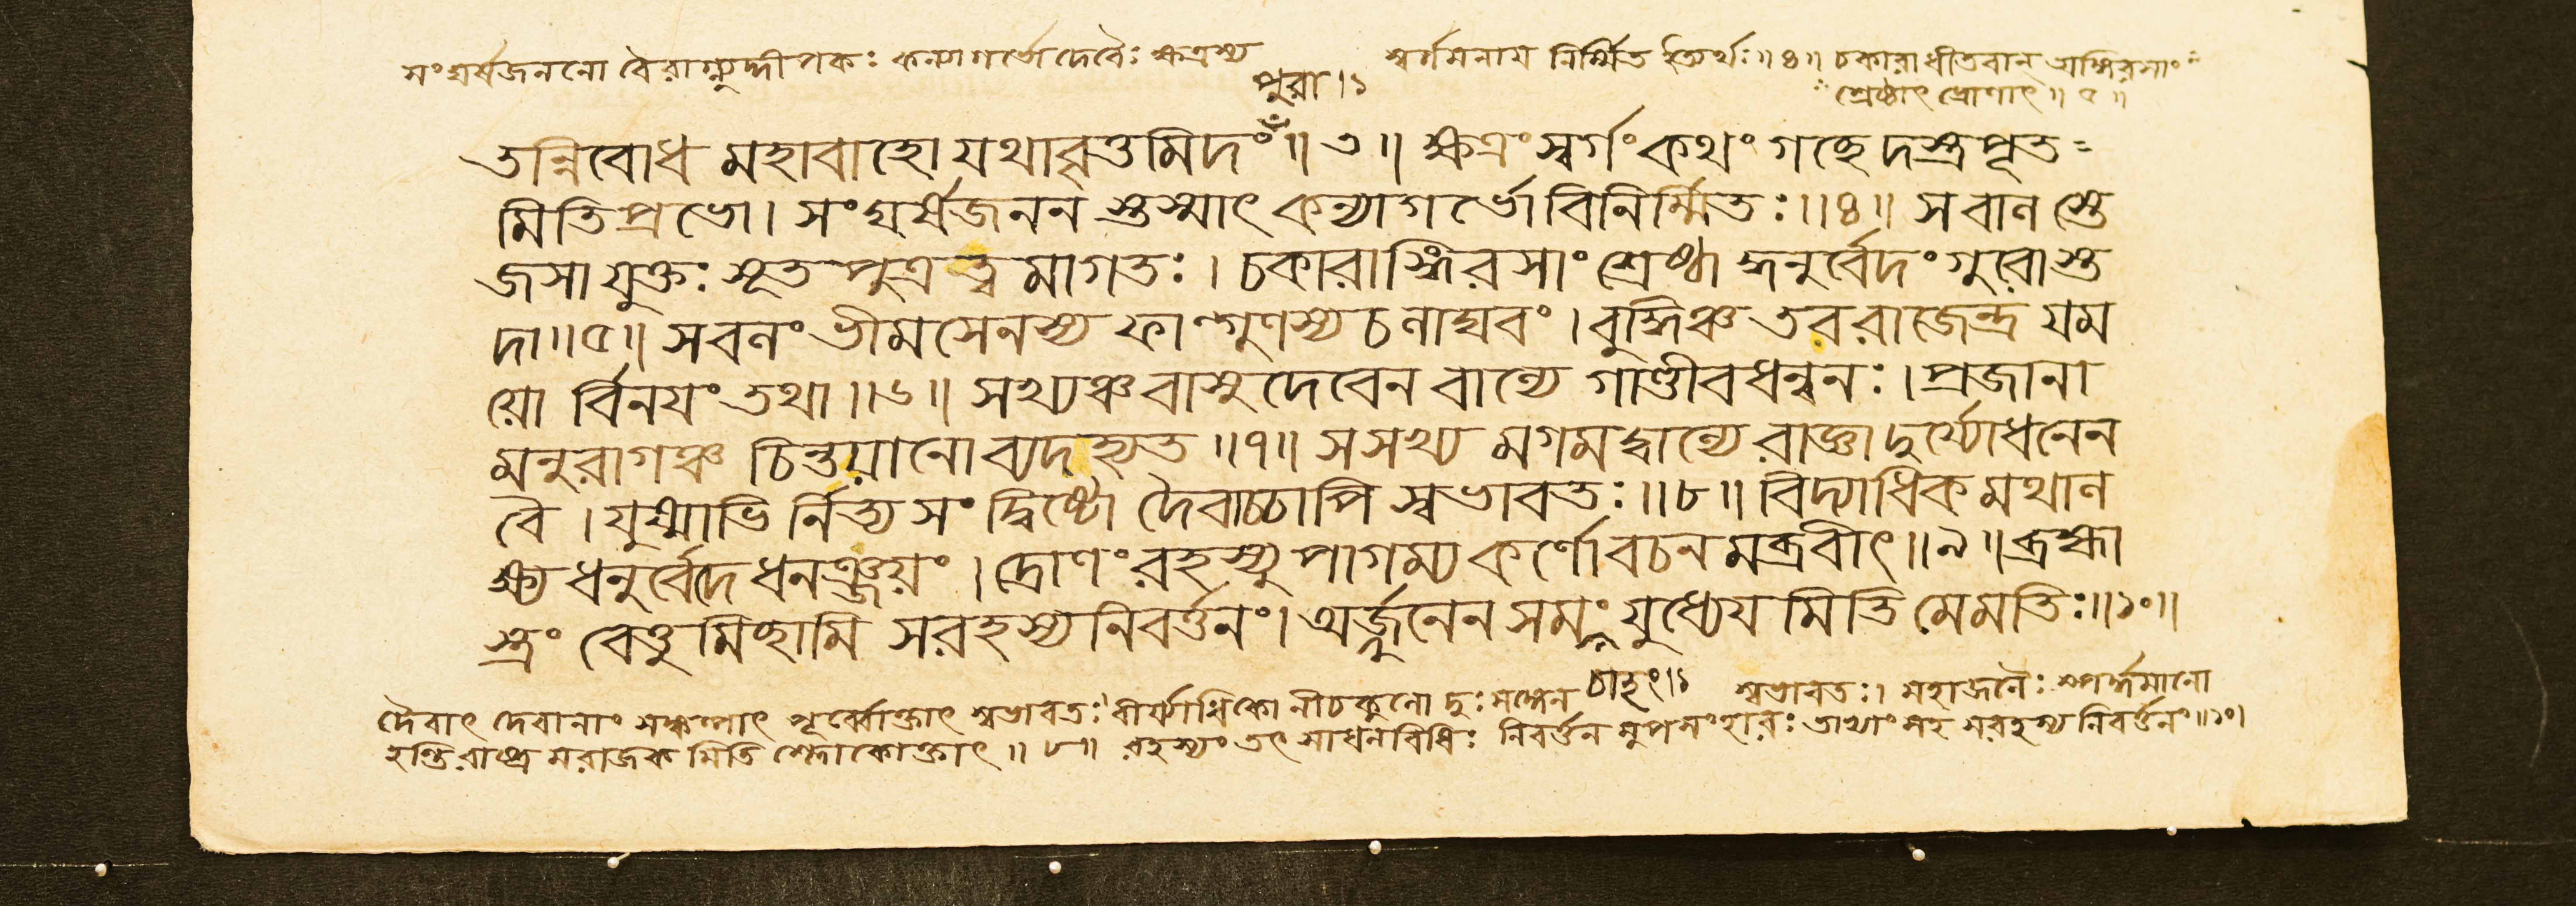 সংঘর্ষজননো বৈরাগ্ন্যুদ্দীপকঃ কন্যাগর্ভো দেবৈঃ ক্ষত্রস্য
স্বর্গমনায় নির্ম্মিত ইত্যর্থঃ॥৪॥ চকারাধীতবান্ অঙ্গিরসাং
পুরা।১
শ্রেষ্ঠাৎ দ্রোণাৎ॥৫॥
তন্নিবোধ মহাবাহো যথাবৃত্তমিদং॥৩॥ ক্ষত্রং স্বর্গং কথং গচ্ছেদস্ত্রপূত=
মিতিপ্রভো। সংঘর্ষজনন স্তস্মাৎ কন্যাগর্ভো বিনির্ম্মিতঃ॥৪॥ সবাল স্তে
জসাযুক্তঃ সূতপুত্রত্বমাগতঃ। চকারাঙ্গিরসাং শ্রেষ্ঠা দ্ধনুর্বেদং গুরোস্ত
দা॥৫॥ সবলং ভীমসেনস্য ফাল্গুণস্য চলাঘবং। বুদ্ধিঞ্চ তবরাজেন্দ্র যম
য়ো র্বিনয়ং তথা॥৬॥ সখ্যঞ্চ বাসুদেবেন বাল্যে গাণ্ডীবধন্বনঃ। প্রজানা
মনুরাগঞ্চ চিন্তয়ানো ব্যদহ্যত॥৭॥ সসখ্য মগমদ্বাল্যে রাজ্ঞা দুর্য্যোধনেন
বৈ। যুষ্মাভি র্নিত্য সংদ্বিষ্টো দৈবাচ্চাপি স্বভাবতঃ॥৮॥ বিদ্যাধিকমথাল
ক্ষ্য ধনুর্বেদে ধনঞ্জয়ং। দ্রোণং রহস্যুপাগম্য কর্ণো বচনমব্রবীৎ॥৯॥ ব্রহ্মা
স্ত্রং বেত্তুমিচ্ছামি সরহস্যনিবর্ত্তনং। অর্জ্জুনেন সমং যুধ্যেয় মিতি মেমতিঃ॥১০॥
চাহং।১
দৈবাৎ দেবানাং সঙ্কল্পাৎ পূর্ব্বোক্তাৎ স্বভাবতঃ বীর্য্যাধিকো নীচকুলো দুঃ
স্বভাবতঃ। মহাজনৈঃ স্পর্দ্ধমানো
হন্তি রাষ্ট্র মরাজক মিতি শ্লোকোক্তাৎ॥৮॥ রহস্যং তৎ সাধনবিধিঃ নিবর্ত্তন মুপসংহারঃ তাভ্যাং সহ সরহস্য নিবর্ত্তনং॥১০।